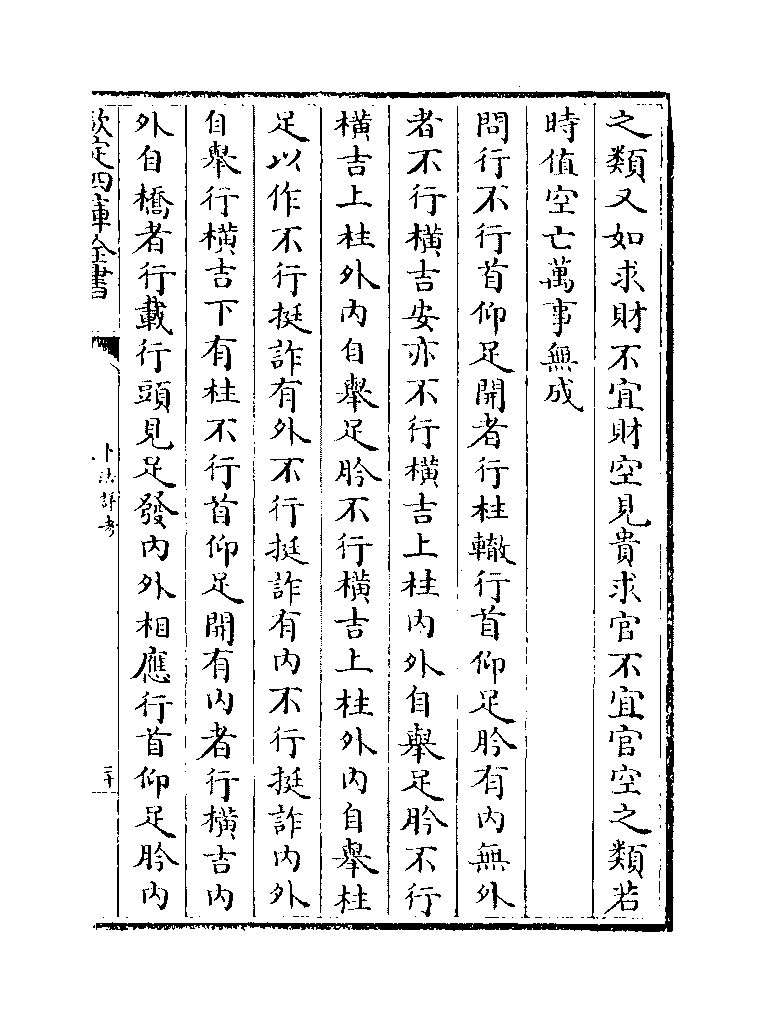 之類又如求財不宜財空見貴求官不宜官空之類若
時值空亡萬事無成
問行不行首仰足開者行柱轍行首仰足肣有内無外
者不行橫吉安亦不行橫吉上柱内外自舉足肣不行
橫吉上柱外内自舉足肣不行橫吉上柱外内自舉柱
足以作不行挺詐有外不行挺詐有内不行挺詐内外
自舉行橫吉下有柱不行首仰足開有内者行橫吉内
外自橋者行載行頭見足發内外相應行首仰足肣内
欽定四庫全書
卜法詳考
二十